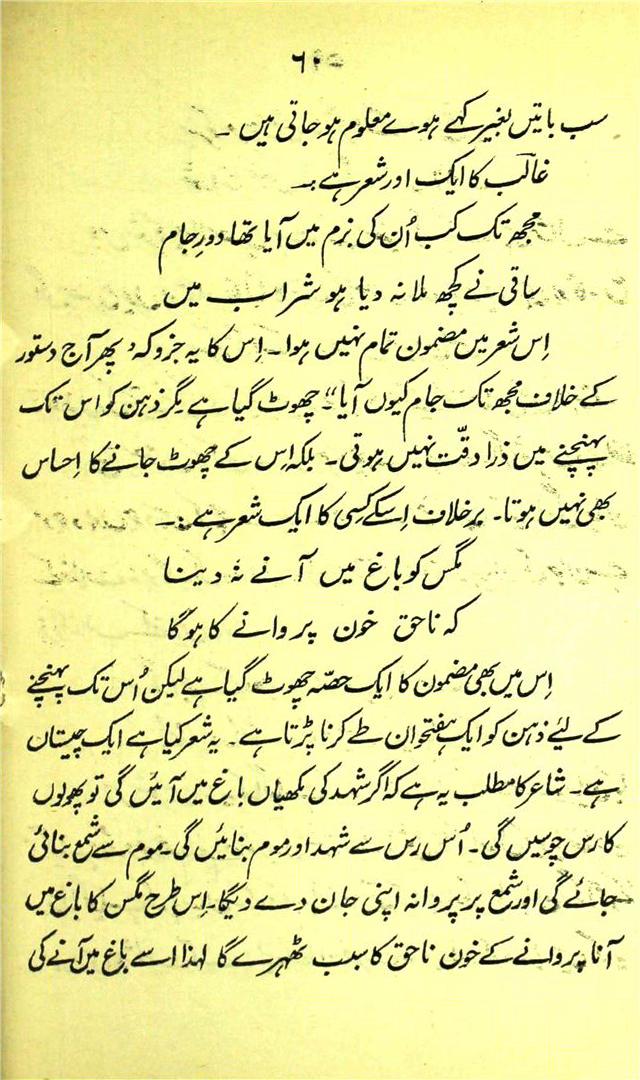 ۶۰
سب باتیں بغیر کہے ہوے معلوم ہو جاتی ہیں ۔
غالبؔ کا ایک اور شعر ہے :۔
مجھ تک کب اُن کی بزم میں آیا تھا دورِ جام
ساقی نے کچھ ملا نہ دیا ہو شراب میں
اِس شعر میں مضمون تمام نہیں ہوا۔ اِس کا یہ جزو کہ ’ پھر آج دستور
کے خلاف مجھ تک جام کیوں آیا“ چھوٹ گیا ہے مگر ذہن کو اس تک
پہنچنے میں ذرا دقّت نہیں ہوتی۔ بلکہ اِس کے چھوٹ جانے کا اِحساس
بھی نہیں ہوتا۔ برخلاف اِسکے کِسی کا ایک شعر ہے :۔
مگس کو باغ میں آنے نہ دینا
کہ ناحق خون پروانے کا ہوگا
اِس میں بھی مضمون کا ایک حصّہ چھوٹ گیا ہے لیکن اُس تک پہنچنے
کے لیئے ذہن کو ایک ہفتخوان طے کرنا پڑتا ہے۔ یہ شعر کیا ہے ایک چیستاں
ہے۔ شاعر کا مطلب یہ ہے کہ اگر شہد کی مکھیاں باغ میں آئیں گی تو پھولوں
کا رس چوسیں گی۔ اُس رس سے شہد اور موم بنائیں گی۔ موم سے شمع بنائی
جائے گی اور شمع پر پروانہ اپنی جان دے دیگا۔ اِس طرح مگس کا باغ میں
آنا پروانے کے خون ناحق کا سبب ٹھہرے گا لہذا اسے باغ میں آنے کی